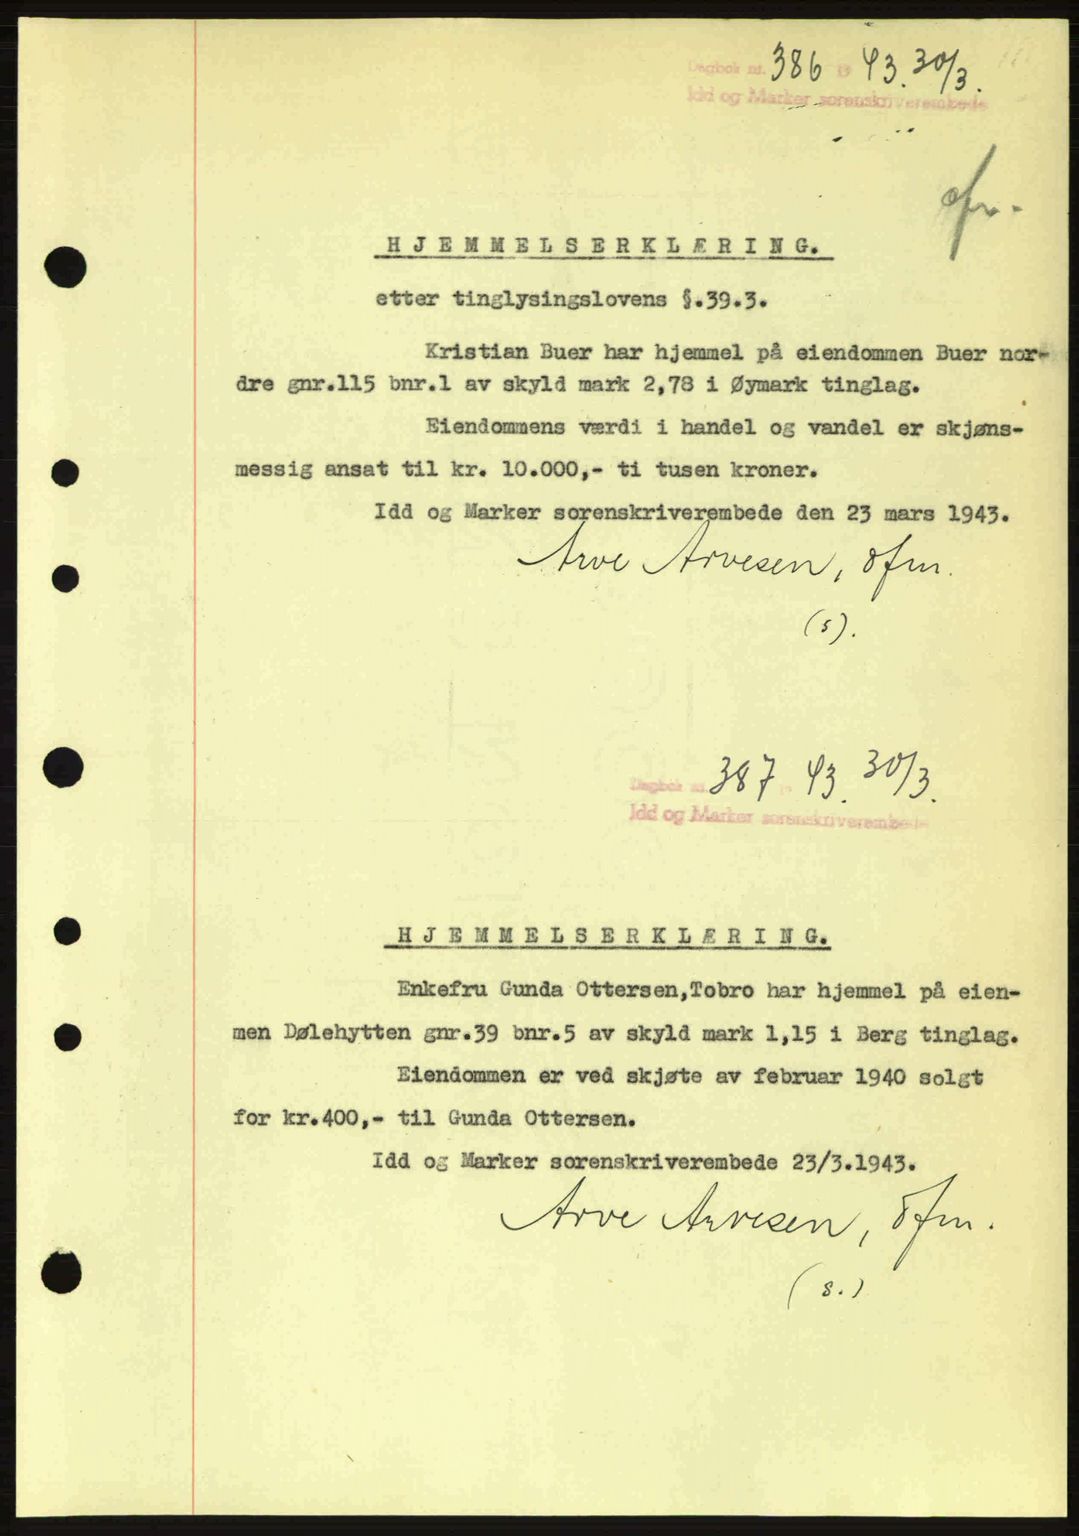 Dagbok nr. 386 19 43. 30/3.
Idd og Marker sorenskriverembede
HJEMMELSERKLÆRING.
etter tinglysingslovens §.39.3.
Kristian Buer har hjemmel på eiendommen Buer nor-
dre gnr.115 bnr.1 av skyld mark 2,78 i Øymark tinglag.
Eiendommens værdi i handel og vandel er skjøns-
messig ansat til kr. 10.000,- ti tusen kroner.
Idd og Marker sorenskriverembede den 23 mars 1943.
Arve Arvesen, ofm.
(s).
Dagbok nr. 387 19 43. 30/3.
Idd og Marker sorenskriverembede
HJEMMELSERKLÆRING.
Enkefru Gunda Ottersen,Tobro har hjemmel på eien-
men Dølehytten gnr.39 bnr.5 av skyld mark 1,15 i Berg tinglag.
Eiendommen er ved skjøte av februar 1940 solgt
for kr.400,- til Gunda Ottersen.
Idd og Marker sorenskriverembede 23/3.1943.
Arve Arvesen, ofm.
(s.)